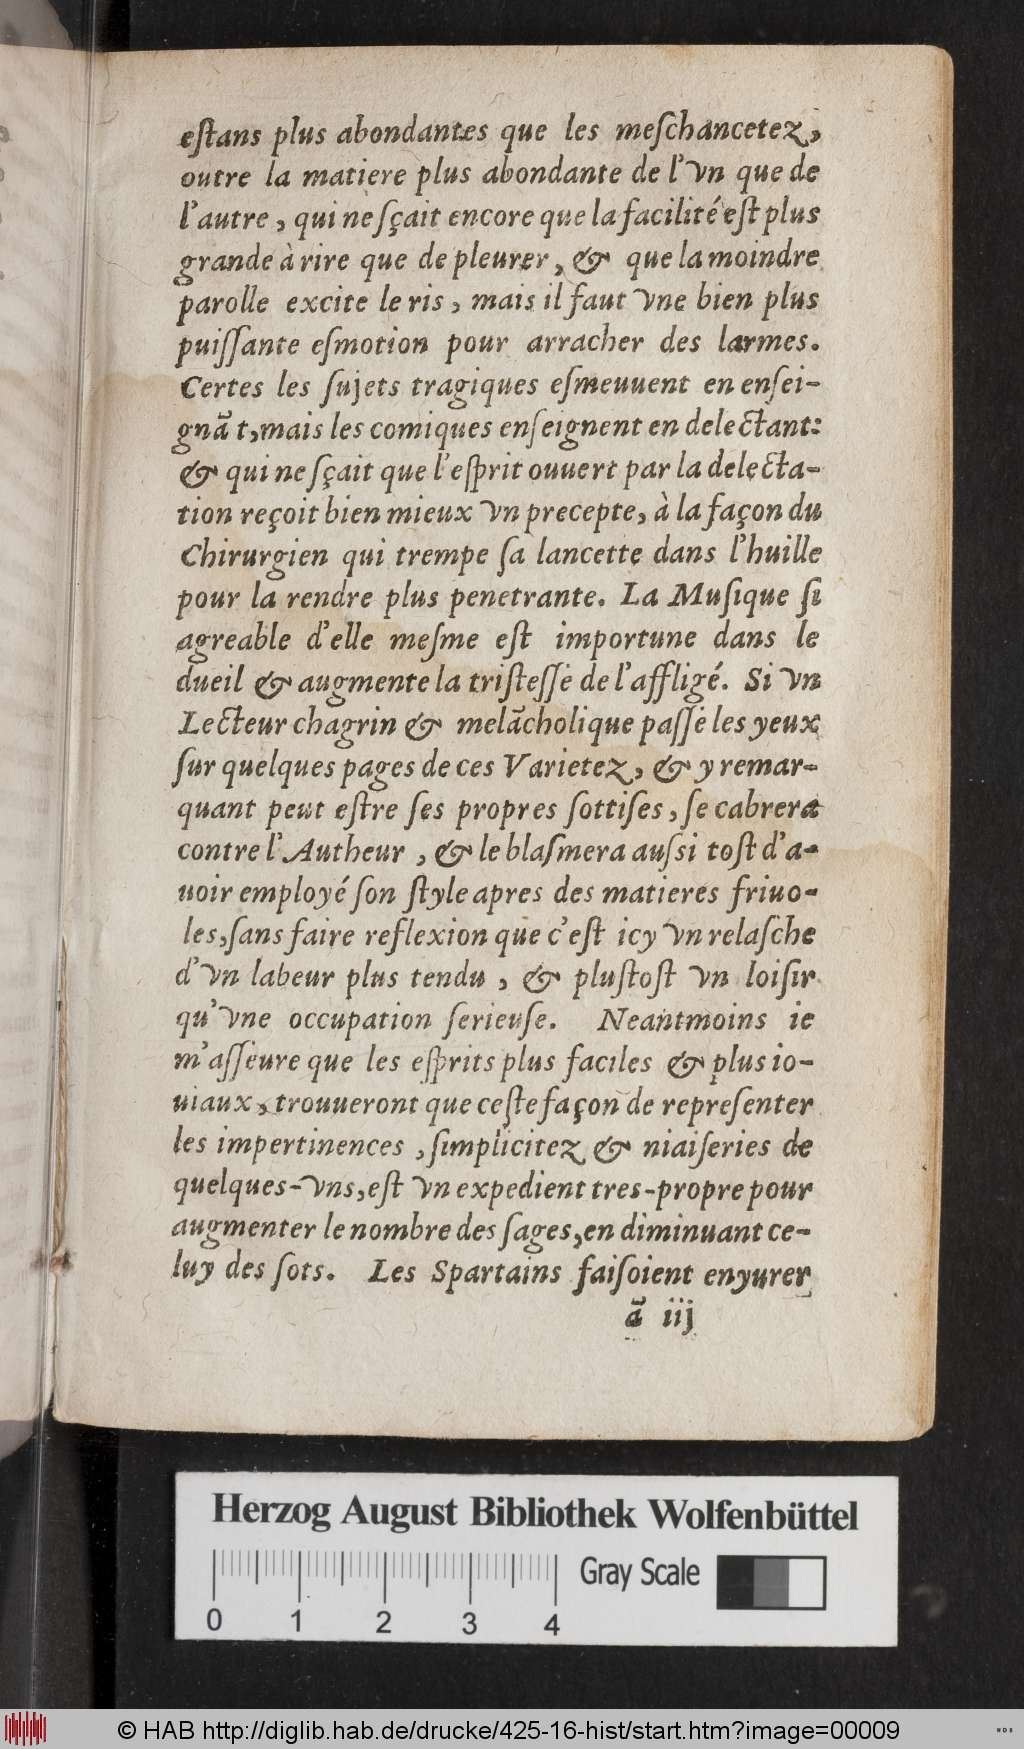 eſtans plus abondantes que les meſchancetez,
outre la matiere plus abondante de l'vn que de
l'autre, qui ne ſçait encore que la facilité eſt plus
grande à rire que de pleurer, & que la moindre
parolle excite le ris, mais il faut vne bien plus
puiſſante eſmotion pour arracher des larmes.
Certes les ſujets tragiques eſmeuuent en enſei-
gnãt, mais les comiques enſeignent en delectant:
& qui ne ſçait que l'eſprit ouuert par la delecta-
tion reçoit bien mieux vn precepte, à la façon du
Chirurgien qui trempe ſa lancette dans l'huille
pour la rendre plus penetrante. La Muſique ſi
agreable d'elle meſme eſt importune dans le
dueil & augmente la triſteſſe de l'affligé. Si vn
Lecteur chagrin & melãcholique paſſe les yeux
ſur quelques pages de ces Varietez, & y remar-
quant peut eſtre ſes propres ſottiſes, ſe cabrera
contre l'Autheur, & le blaſmera auſsi toſt d'a-
uoir employé ſon ſtyle apres des matieres friuo-
les, ſans faire reflexion que c'eſt icy vn relaſche
d'vn labeur plus tendu, & pluſtoſt vn loiſir
qu'vne occupation ſerieuſe. Neantmoins ie
m'aſſeure que les eſprits plus faciles & plus io-
uiaux, trouueront que ceſte façon de repreſenter
les impertinences, ſimplicitez & niaiſeries de
quelques-vns, eſt vn expedient tres-propre pour
augmenter le nombre des ſages, en diminuant ce-
luy des ſots. Les Spartains faiſoient enyurer
ã iij
Herzog August Bibliothek Wolfenbüttel
Gray Scale
0 1 2 3 4
© HAB http://diglib.hab.de/drucke/425-16-hist/start.htm?image=00009